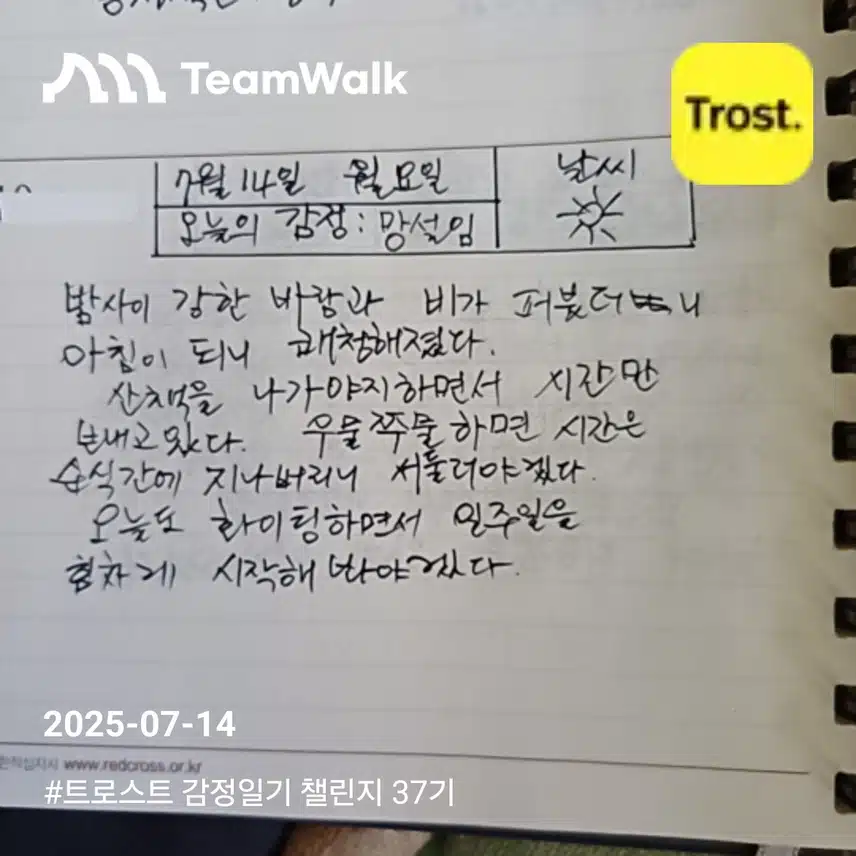 TeamWalk
Trost.
7월 14일 월요일
날씨
오늘의 감정 : 망설임
밤사이 강한 바람과 비가 퍼붓더니
아침이 되니 쾌청해졌다.
산책을 나가야지하면서 시간만
보내고 있다. 우물쭈물하면 시간은
순식간에 지나버리니 서둘러야겠다.
오늘도 화이팅하면서 일주일을
힘차게 시작해 봐야겠다.
2025-07-14
한적십자사 www.redcross.or.kr
#트로스트 감정일기 챌린지 37기